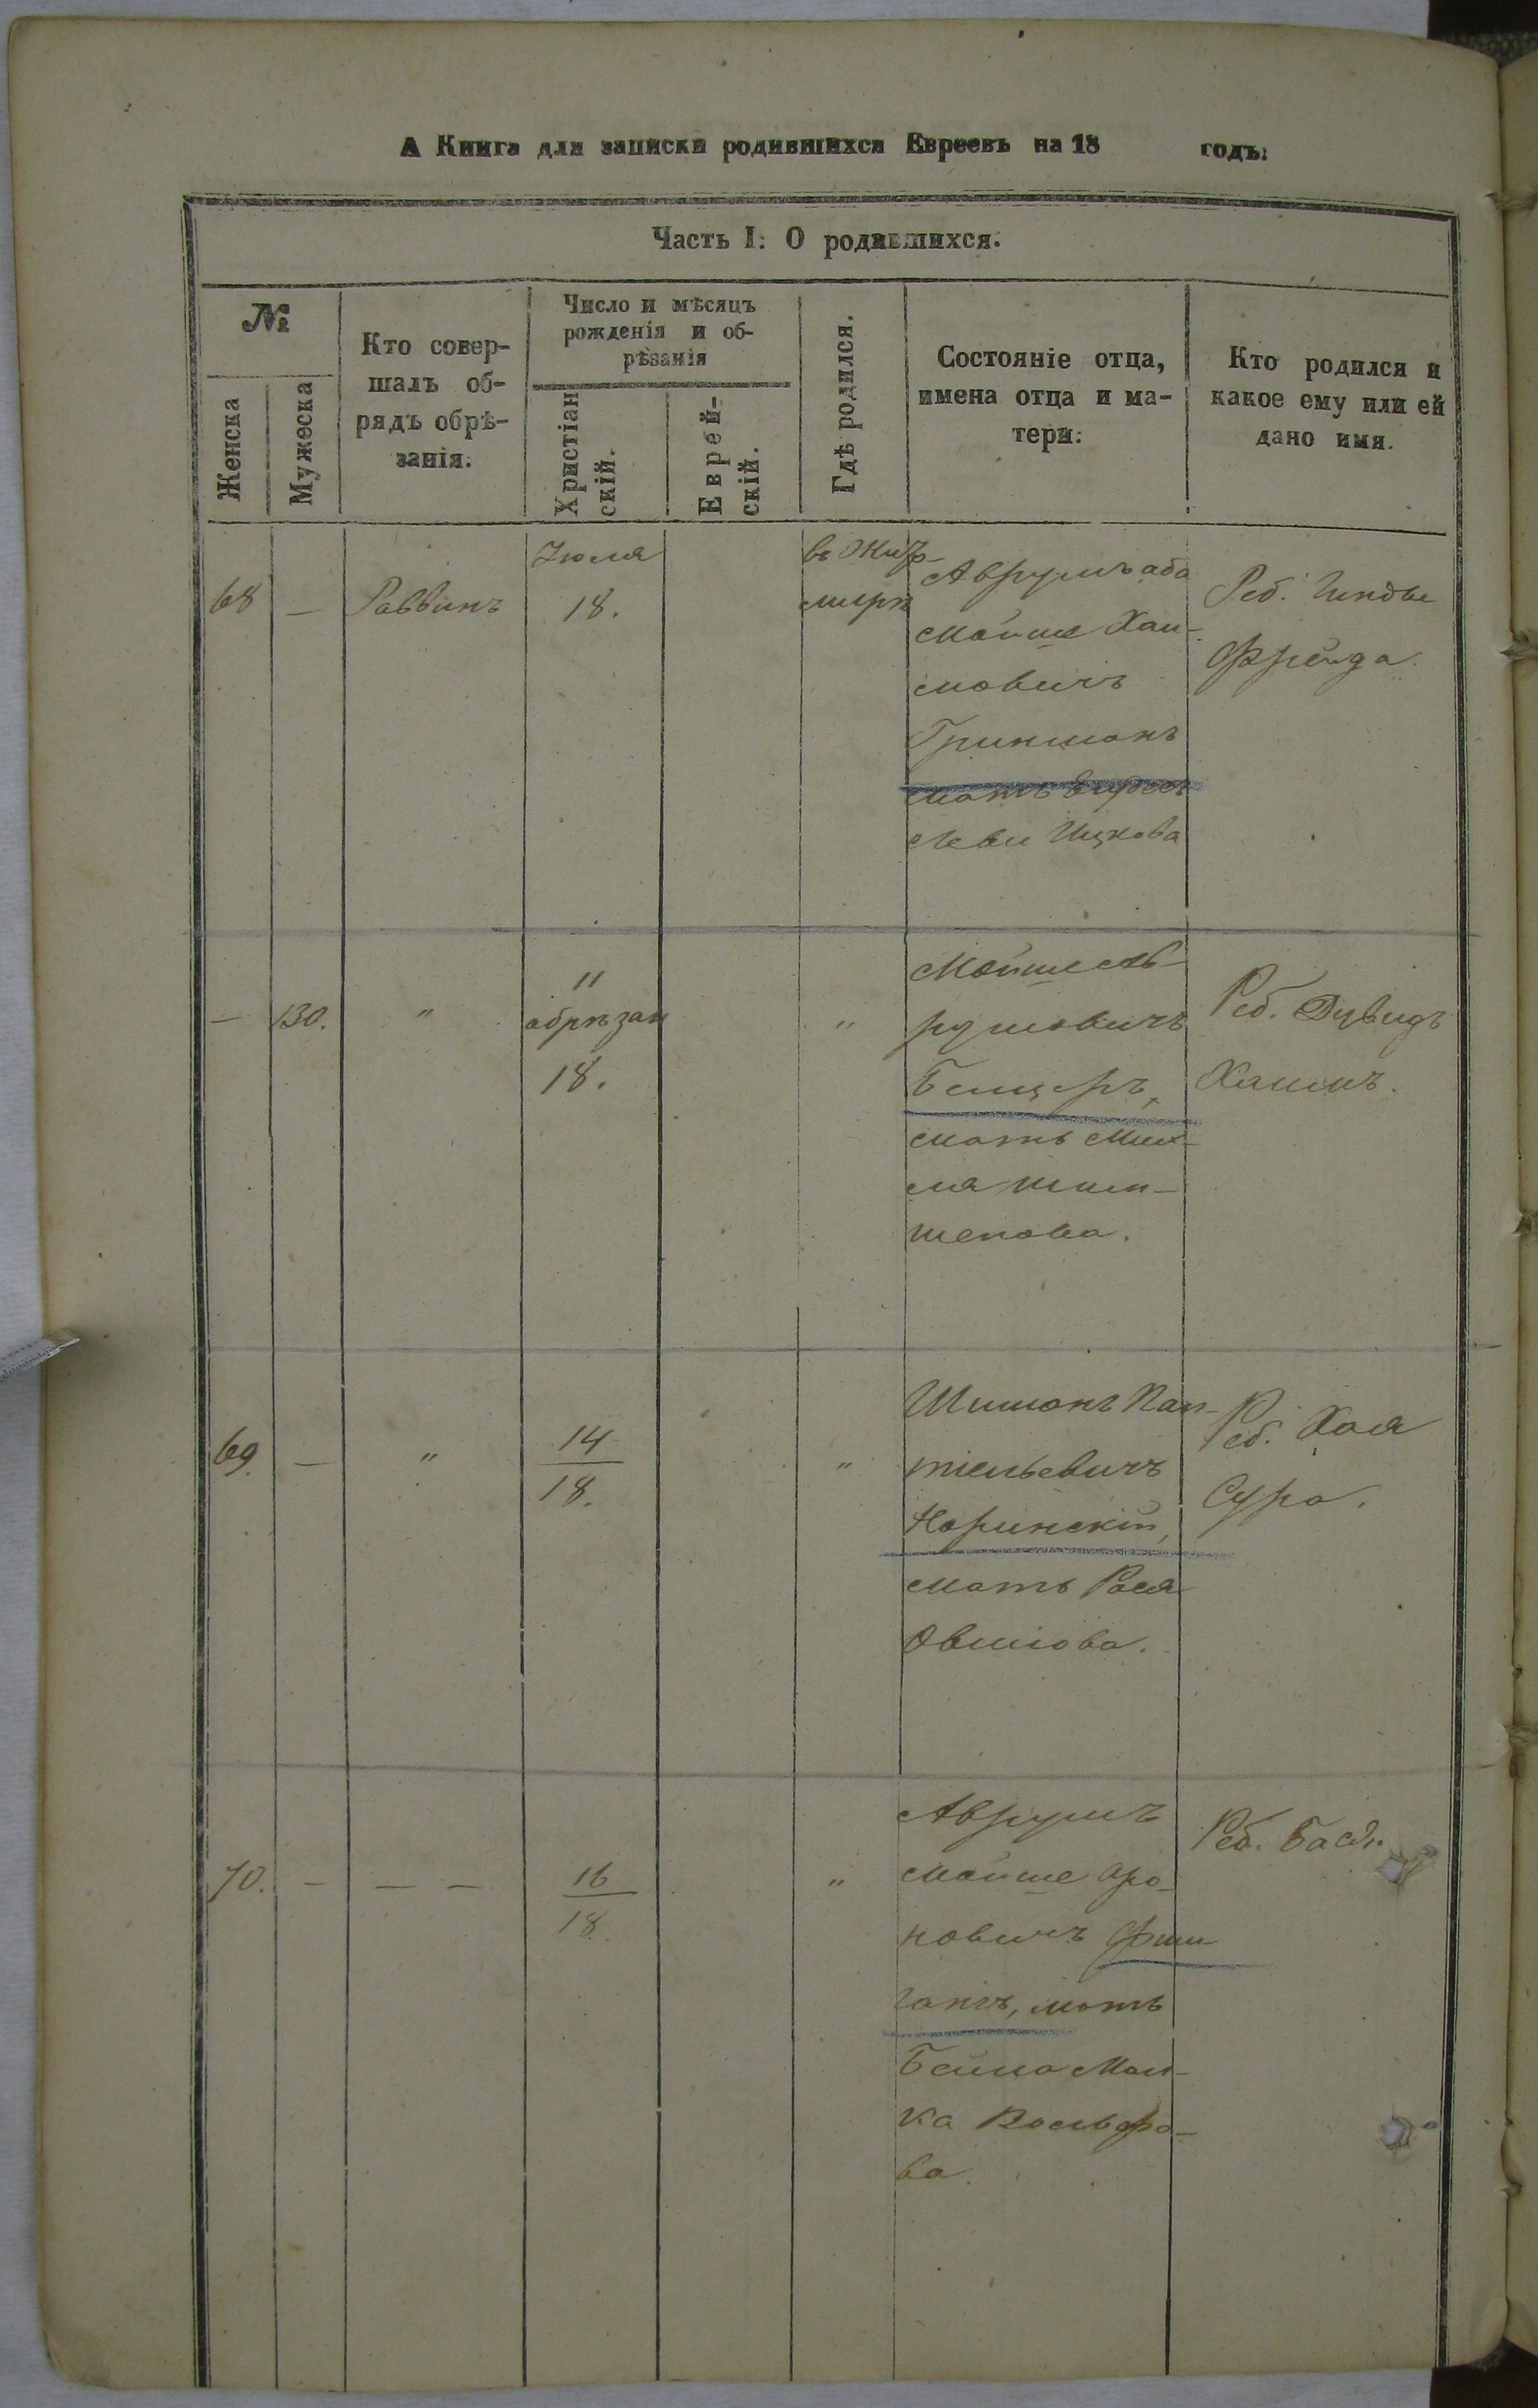 А Книга для записки родившихся Евреевъ на 18 годъ.
Часть I: О родившихся.
№
Женска
Мужеска
Кто совер-
шалъ об-
рядъ обрѣ-
занія.
Число и мѣсяцъ
рожденія и об-
рѣзанія
Христіан
скій.
Еврей-
скій.
Гдѣ родился.
Состояніе отца,
имена отца и ма-
тери:
Кто родился и
какое ему или ей
дано имя.
68 — Раввинъ
Іюля
18.
въ Жит-
мирѣ
Аврумъ аба
Мойше Хаи-
мовичъ
Гринманъ
мать
Леви Ицкова
Реб.
Фрейда.
— 130. "
11
обрѣзан
18.
"
Мойше Ав-
румовичъ
мать
Реб. Дувидъ
Хаимъ.
69. — "
14
18.
"
Шимонъ
Норинскій,
мать Рося
Реб. Хая
Сура.
70. — — —
16
18.
"
Аврумъ
Мойше Аро-
новичъ
мать
Бейла Мал-
ка Вольфо-
ва.
Реб. Бася.